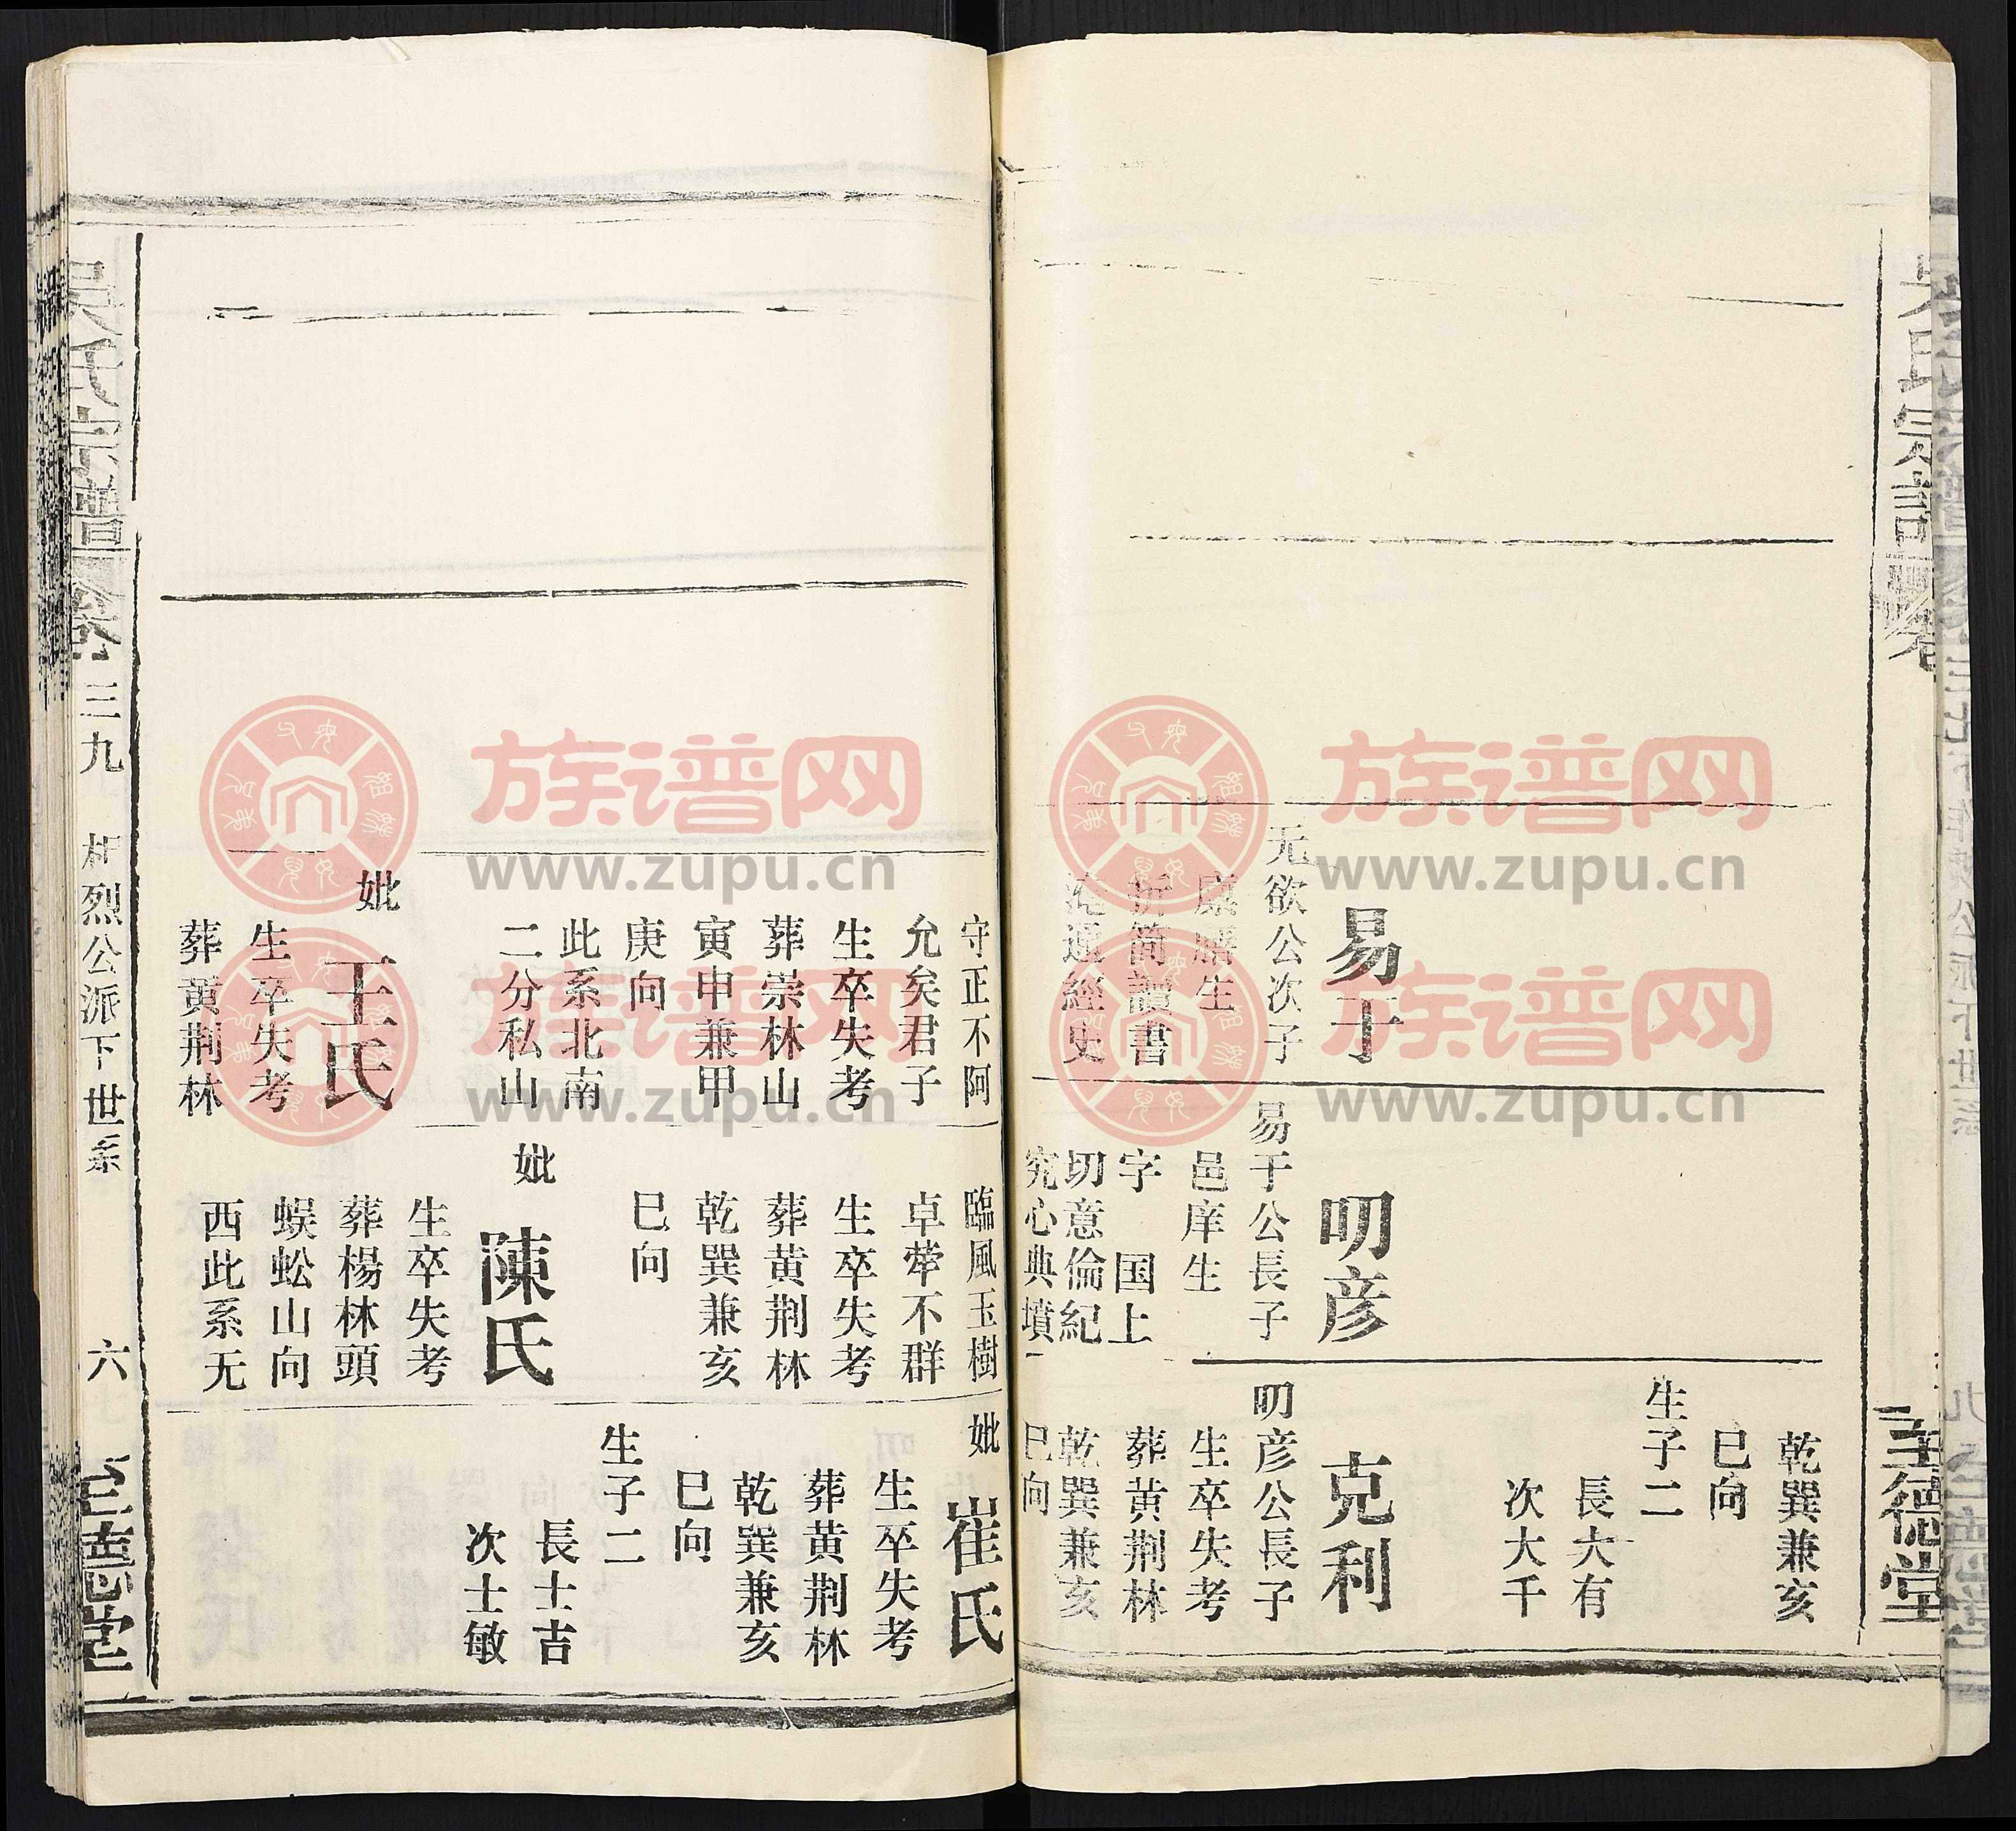 至德堂
易于
无欲公次子
廩膳生
折簡讀書
淹通經史
叨彦
易于公長子
邑庠生
字 国上
切意倫紀
究心典墳
乾巽兼亥
巳向
生子二
長大有
次大千
克利
叨彦公長子
生卒失考
葬黄荆林
乾巽兼亥
巳向
守正不阿
允矣君子
生卒失考
葬崇林山
寅申兼甲
庚向
此系北南
二分私山
妣
王氏
生卒失考
葬黄荆林
臨風玉樹
卓犖不群
生卒失考
葬黄荆林
乾巽兼亥
巳向
妣
陳氏
生卒失考
葬楊林頭
蜈蚣山向
西此系无
妣
崔氏
生卒失考
葬黄荆林
乾巽兼亥
巳向
生子二
長士吉
次士敏
吴氏宗譜
卷三九
烈公派下世系
六
至德堂
族谱网
www.zupu.cn
族谱网
www.zupu.cn
族谱网
www.zupu.cn
族谱网
www.zupu.cn